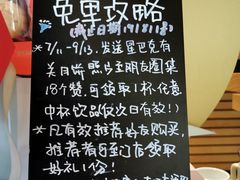 免单攻略
(截止日期:9月13日)
*7/11-9/13.发送星巴克有
美目饼照片至朋友圈集
18个赞,可领取1杯任意
中杯饮品(次日有效!)
*凡有效推荐好友购买,
推荐者可至门店领取
好礼1份!